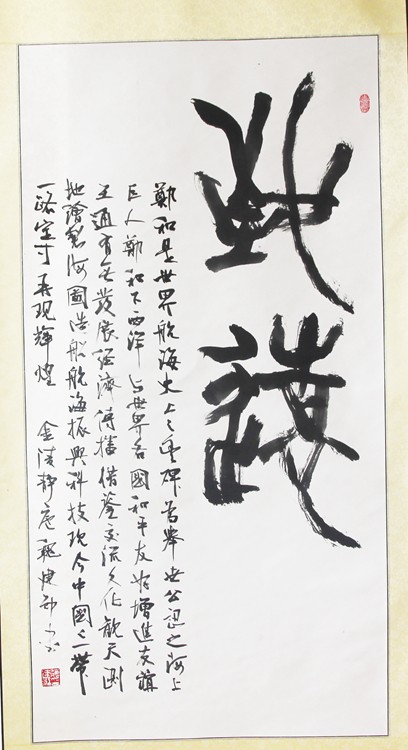 鄭和是世界航海史上之豐碑為舉世公認之海上
巨人鄭和下西洋与世界各國和平友好增進友誼
互通有无發展經濟傳播借鑒交流文化觀天測
地繪製海圖造船航海振興科技现今中國之一帶
一路定可再现輝煌 金陵靜庵